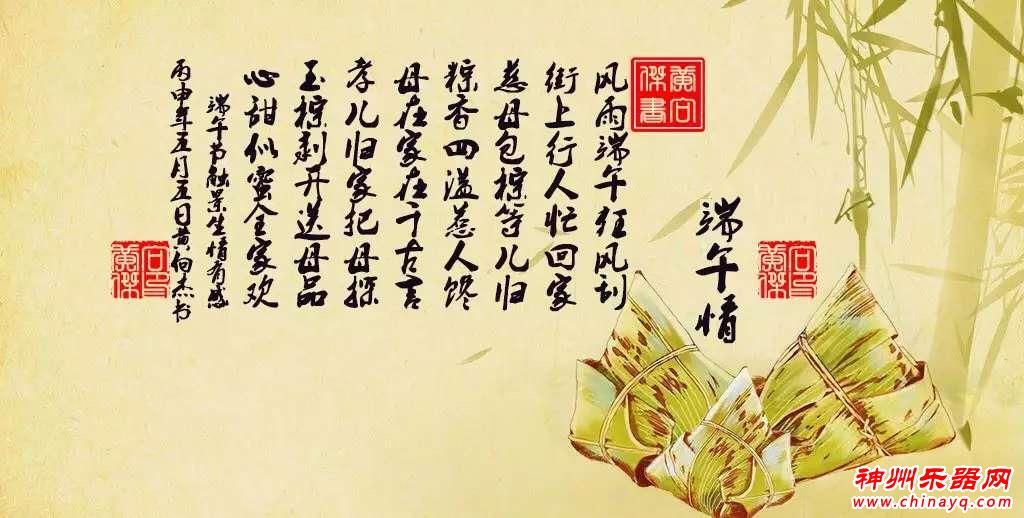 端午情
风雨端午狂风刮
街上行人忙回家
慈母包棕等儿归
粽香四溢惹人馋
母在家在千古言
孝儿归家把母探
玉棕剥开送母品
心甜似蜜全家欢
端午节触景生情有感
丙申年五月五日黄向杰书
黄向傑書
神州乐器网
www.chinayq.com